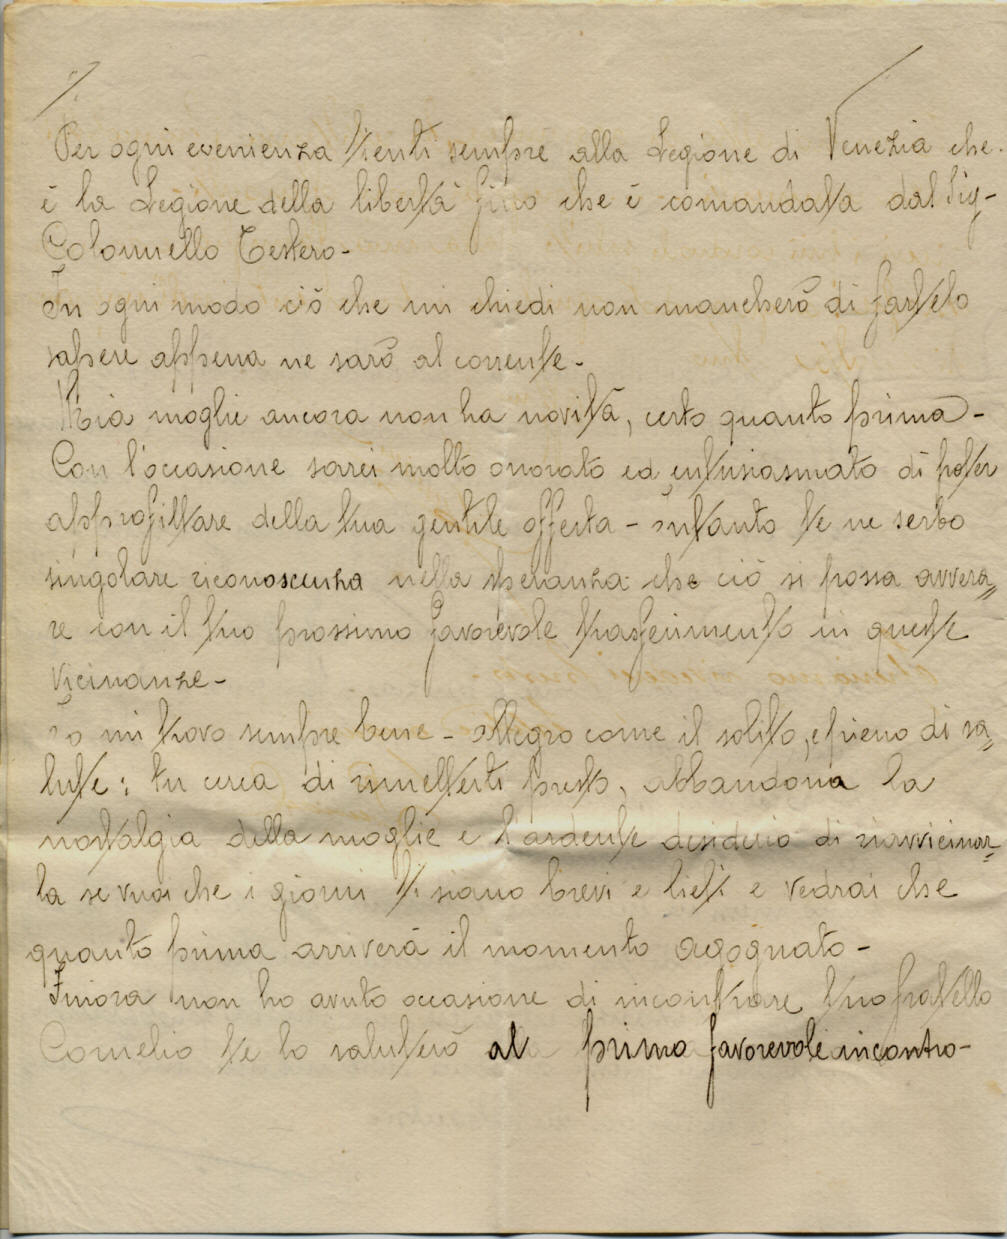 Per ogni evenienza tienti sempre alla Legione di Venezia che
è la Legione della libertà fino che è comandata dal Sig-
Colonnello Testero-
In ogni modo ciò che mi chiedi non mancherò di fartelo
sapere appena ne sarò al corrente-
Mia moglie ancora non ha novità, certo quanto prima-
Con l'occasione sarei molto onorato ed entusiasmato di poter
approfittare della tua gentile offerta - intanto te ne serbo
singolare riconoscenza nella speranza che ciò si possa avvera=
re con il tuo prossimo favorevole trasferimento in queste
vicinanze-
Io mi trovo sempre bene - allegro come il solito, e pieno di sa=
lute; tu cerca di rimetterti presto, abbandona la
nostalgia della moglie e l'ardente desiderio di riavvicinar=
la se vuoi che i giorni ti siano brevi e lieti e vedrai che
quanto prima arriverà il momento agognato-
Finora non ho avuto occasione di incontrare tuo fratello
Cornelio te lo saluterò al primo favorevole incontro-